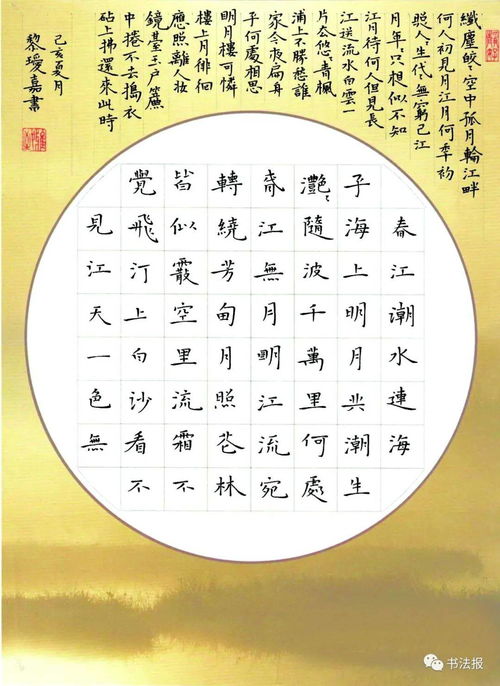 春江潮水連海
平海上明月共潮生
灔々隨波千萬里何處
春江無月明江流宛
轉繞芳甸月照花林
皆似霰空里流霜不
覺飛汀上白沙看不
見江天一色無
纖塵皎々空中孤月輪江畔
何人初見月江月何年初
照人々生代々無窮已江
月年々只相似不知
江月待何人但見長
江送流水白雲一
片去悠々青楓
浦上不勝愁誰
家今夜扁舟
子何處相思
明月樓可憐
樓上月徘徊
應照離人妝
鏡臺玉户簾
中捲不去搗衣
砧上拂還來此時
己亥夏月
黎瑷嘉書
书法报